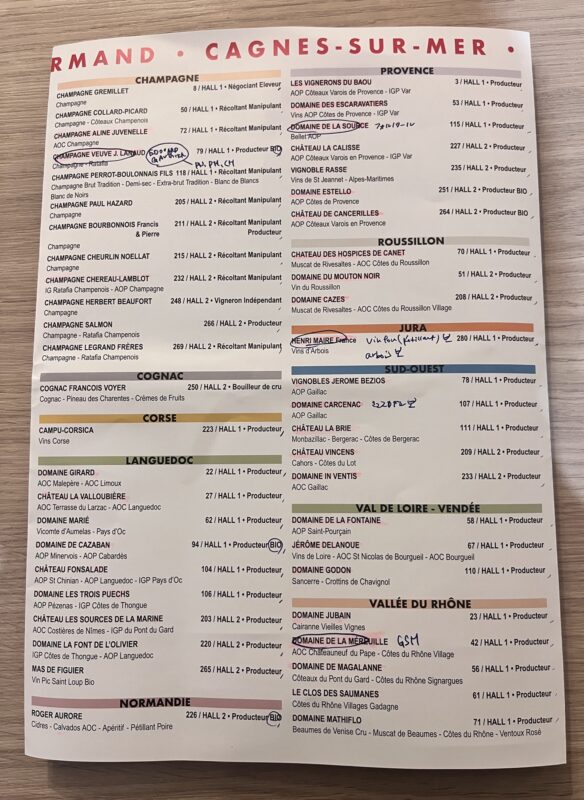 RMAND • CAGNES-SUR-MER •
CHAMPAGNE
CHAMPAGNE GREMILLET 8 / HALL 1 • Négociant Eleveur
Champagne
CHAMPAGNE COLLARD-PICARD 50 / HALL 1 • Récoltant Manipulant
Champagne - Côteaux Champenois
CHAMPAGNE ALINE JUVENELLE 72 / HALL 1 • Récoltant Manipulant
AOC Champagne
CHAMPAGNE VEUVE J. LANAUD 79 / HALL 1 • Producteur BIO
Champagne - Ratafia PN, PM, CH
CHAMPAGNE PERROT-BOULONNAIS FILS 118 / HALL 1 • Récoltant Manipulant
Champagne Brut Tradition - Demi-sec - Extra-brut Tradition - Blanc de Blancs
Blanc de Noirs
CHAMPAGNE PAUL HAZARD 205 / HALL 2 • Récoltant Manipulant
Champagne
CHAMPAGNE BOURBONNOIS Francis 211 / HALL 2 • Récoltant Manipulant
& Pierre Producteur
Champagne
CHAMPAGNE CHEURLIN NOELLAT 215 / HALL 2 • Récoltant Manipulant
Champagne
CHAMPAGNE CHEREAU-LAMBLOT 232 / HALL 2 • Récoltant Manipulant
IG Ratafia Champenois - AOP Champagne
CHAMPAGNE HERBERT BEAUFORT 248 / HALL 2 • Vigneron Indépendant
Champagne
CHAMPAGNE SALMON 266 / HALL 2 • Producteur
Champagne - Ratafia Champenois
CHAMPAGNE LEGRAND FRÉRES 269 / HALL 2 • Récoltant Manipulant
Champagne - Ratafia Champenois
COGNAC
COGNAC FRANCOIS VOYER 250 / HALL 2 • Bouilleur de cru
Cognac - Pineau des Charentes - Crèmes de Fruits
CORSE
CAMPU-CORSICA 223 / HALL 1 • Producteur
Vins Corse
LANGUEDOC
DOMAINE GIRARD 22 / HALL 1 • Producteur
AOC Malepère - AOC Limoux
CHÂTEAU LA VALLOUBIÈRE 27 / HALL 1 • Producteur
AOC Terrasse du Larzac - AOC Languedoc
DOMAINE MARIÉ 62 / HALL 1 • Producteur
Vicomte d'Aumelas - Pays d'Oc
DOMAINE DE CAZABAN 94 / HALL 1 • Producteur BIO
AOP Minervois - AOP Cabardès
CHÂTEAU FONSALADE 104 / HALL 1 • Producteur
AOP St Chinian - AOP Languedoc - IGP Pays d'Oc
DOMAINE LES TROIS PUECHS 106 / HALL 1 • Producteur
AOP Pézenas - IGP Côtes de Thongue
CHÂTEAU LES SOURCES DE LA MARINE 203 / HALL 2 • Producteur
AOC Costières de Nîmes - IGP du Pont du Gard
DOMAINE LA FONT DE L'OLIVIER 220 / HALL 2 • Producteur
IGP Côtes de Thongue - AOP Languedoc
MAS DE FIGUIER 265 / HALL 2 • Producteur
Vin Pic Saint Loup Bio
NORMANDIE
ROGER AURORE 226 / HALL 2 • Producteur BIO
Cidres - Calvados AOC - Apéritif - Pétillant Poire
PROVENCE
LES VIGNERONS DU BAOU 3 / HALL 1 • Producteur
AOP Côteaux Varois de Provence - IGP Var
DOMAINE DES ESCARAVATIERS 53 / HALL 1 • Producteur
Vins AOP Côtes de Provence - IGP Var
DOMAINE DE LA SOURCE 115 / HALL 1 • Producteur
Bellet AOP
CHÂTEAU LA CALISSE 227 / HALL 2 • Producteur
AOP Côteaux Varois en Provence - IGP Var
VIGNOBLE RASSE 235 / HALL 2 • Producteur
Vins de St Jeannet - Alpes-Maritimes
DOMAINE ESTELLO 251 / HALL 2 • Producteur BIO
AOP Côtes de Provence
CHÂTEAU DE CANCERILLES 264 / HALL 2 • Producteur BIO
AOP Côteaux Varois en Provence
ROUSSILLON
CHATEAU DES HOSPICES DE CANET 70 / HALL 1 • Producteur
Muscat de Rivesaltes - AOC Côtes du Roussillon
DOMAINE DU MOUTON NOIR 51 / HALL 1 • Producteur
Vin du Roussillon
DOMAINE CAZES 208 / HALL 2 • Producteur
Muscat de Rivesaltes - AOC Côtes du Roussillon Village
JURA
HENRI MAIRE France 280 / HALL 1 • Producteur
Vins d'Arbois arbois
SUD-OUEST
VIGNOBLES JEROME BEZIOS 78 / HALL 1 • Producteur
AOP Gaillac
DOMAINE CARCENAC 107 / HALL 1 • Producteur
AOP Gaillac
CHÂTEAU LA BRIE 111 / HALL 1 • Producteur
Monbazillac - Bergerac - Côtes de Bergerac
CHÂTEAU VINCENS 209 / HALL 2 • Producteur
Cahors - Côtes du Lot
DOMAINE IN VENTIS 233 / HALL 2 • Producteur
AOC Gaillac
VAL DE LOIRE - VENDÉE
DOMAINE DE LA FONTAINE 58 / HALL 1 • Producteur
AOP Saint-Pourçain
JÉRÔME DELANOUE 67 / HALL 1 • Producteur
Vins de Loire - AOC St Nicolas de Bourgueil - AOC Bourgueil
DOMAINE GODON 110 / HALL 1 • Producteur
Sancerre - Crottins de Chavignol
VALLÉE DU RHÔNE
DOMAINE JUBAIN 23 / HALL 1 • Producteur
Cairanne Vieilles Vignes
DOMAINE DE LA MEREUILLE GSM 42 / HALL 1 • Producteur
AOC Châteauneuf du Pape - Côtes du Rhône Village
DOMAINE DE MAGALANNE 56 / HALL 1 • Producteur
Côteaux du Pont du Gard - Côtes du Rhône Signargues
LE CLOS DES SAUMANES 61 / HALL 1 • Producteur
Côtes du Rhône Villages Gadagne
DOMAINE MATHIFLO 71 / HALL 1 • Producteur
Beaumes de Venise Cru - Muscat de Beaumes - Côtes du Rhône - Ventoux Rosé